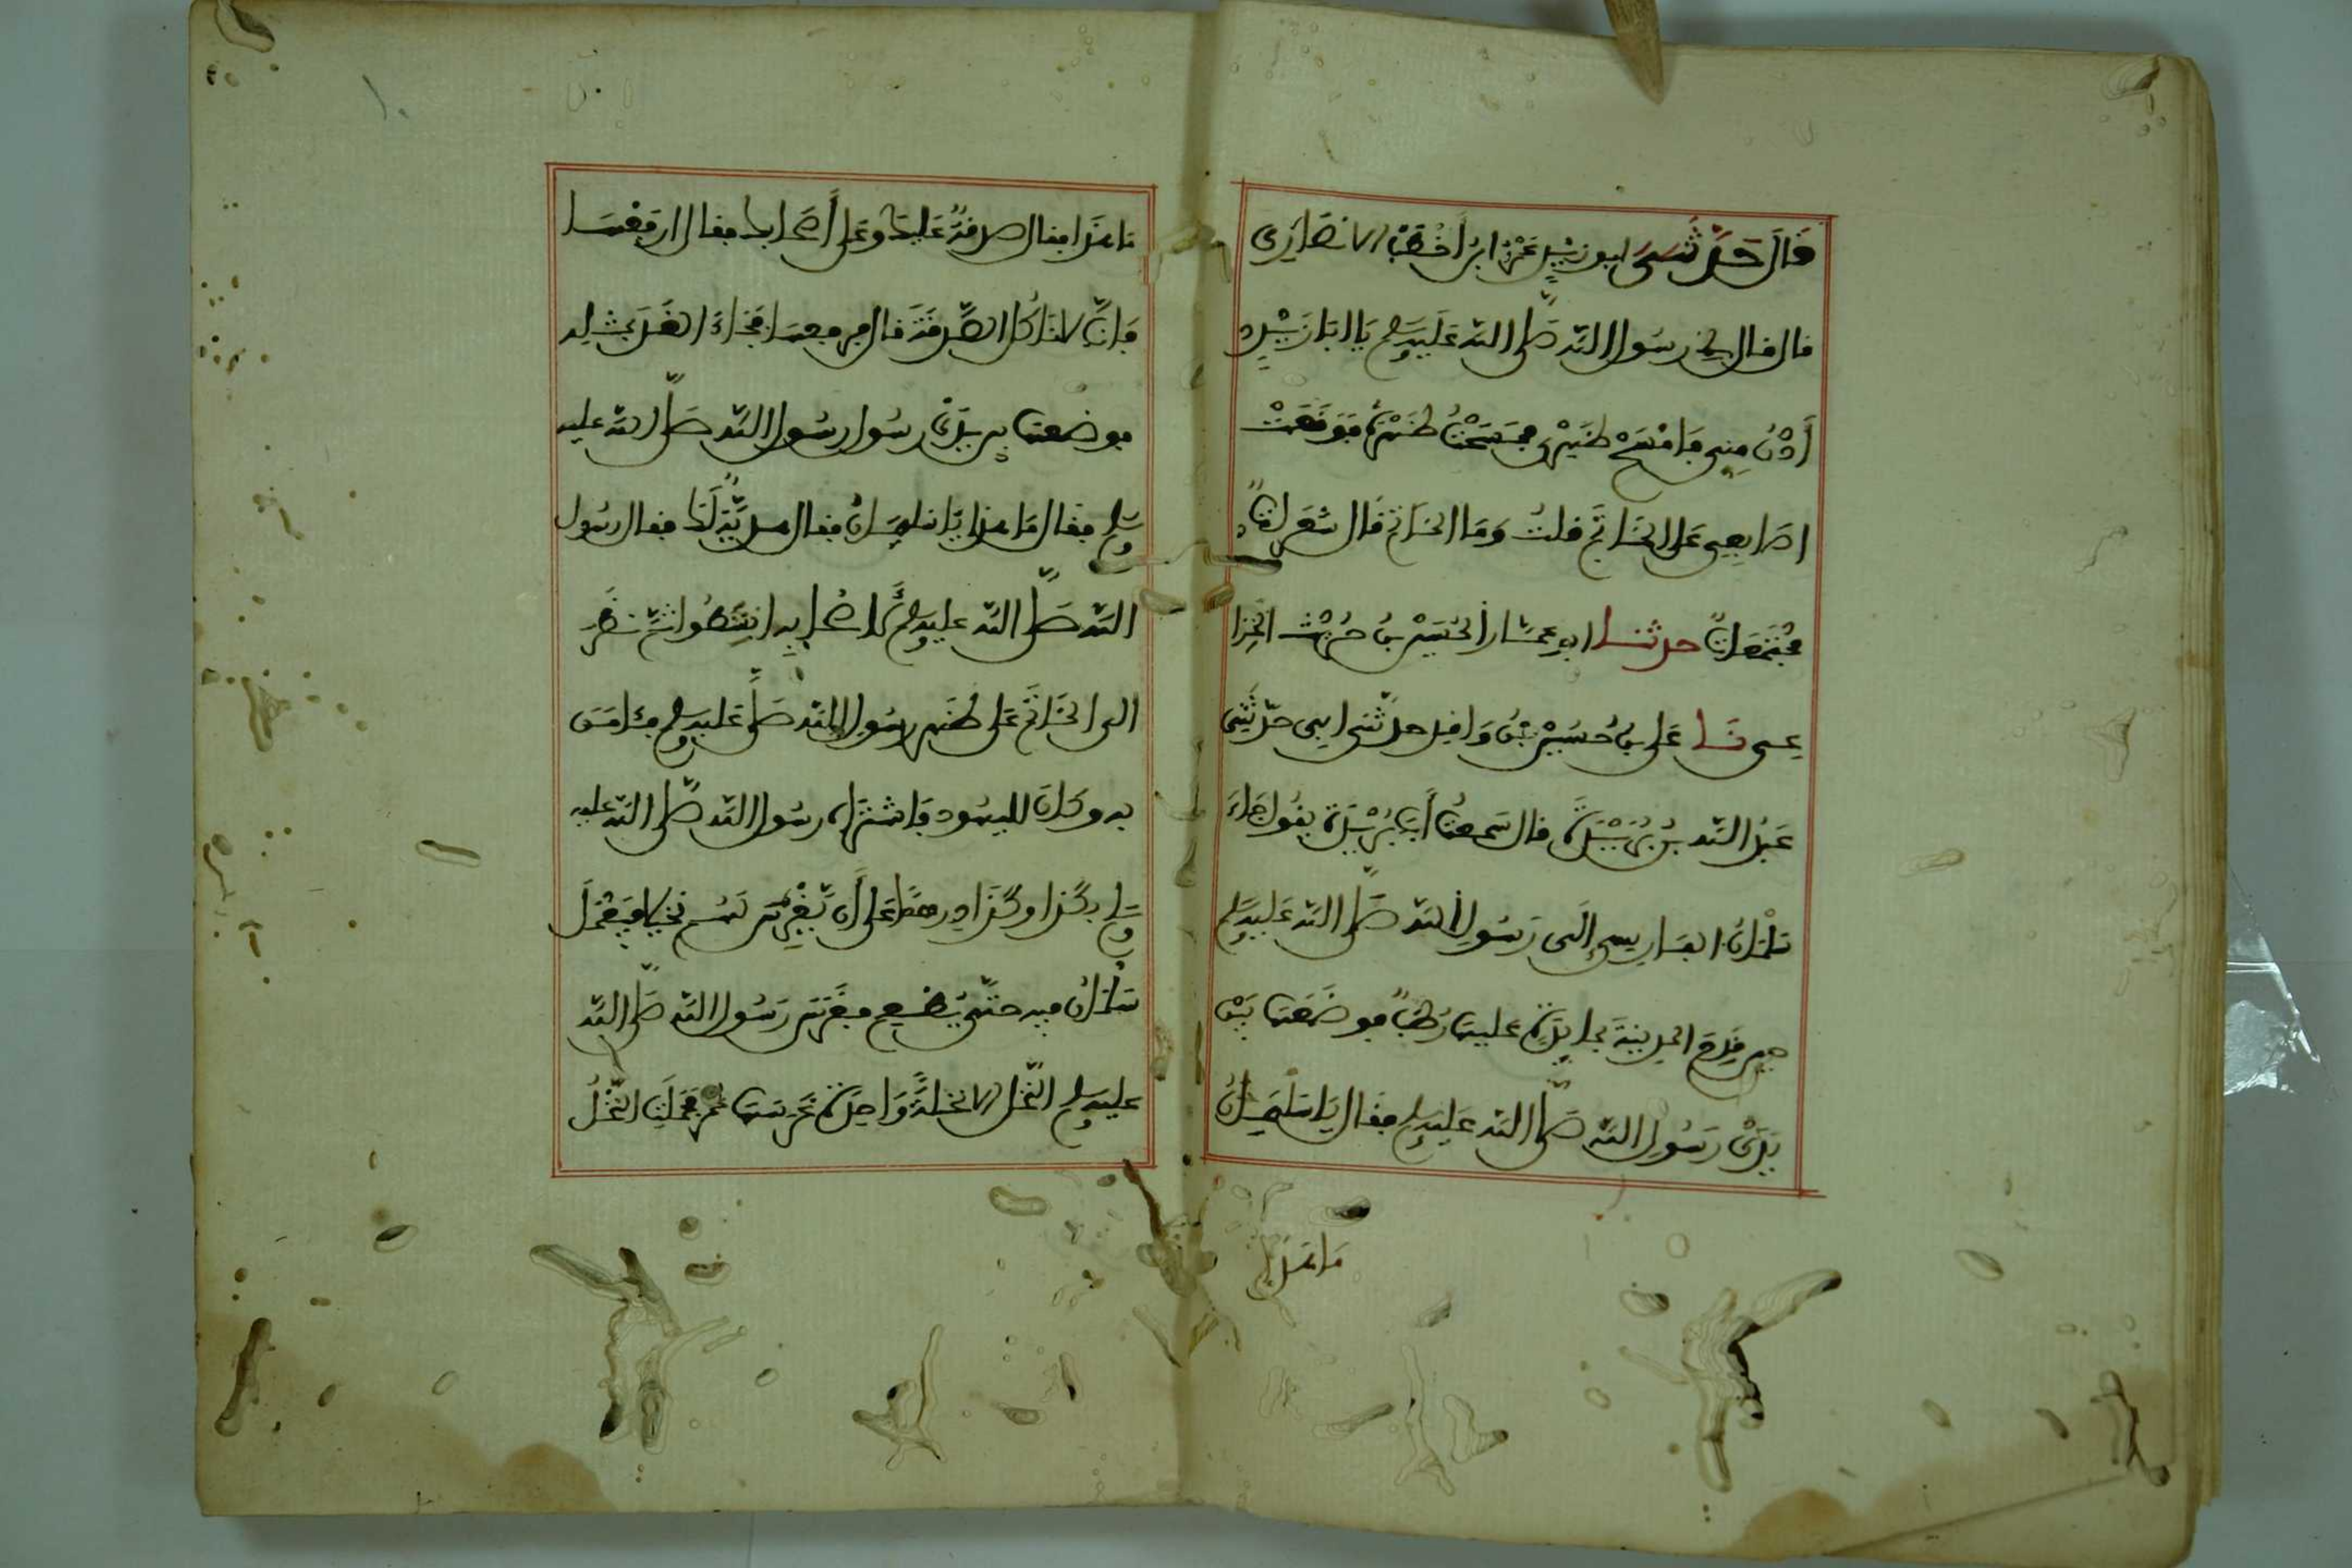 قَالَ حَدَّثَنِي ابو زَيْدٍ عَمْرُو ابنُ أَخْطَبَ الانصَارِي
قال قال لي رسُول الله صَلَّى الله عَلَيه وسلم يَا ابَا زَيْدٍ
أُدْنُ مِنِي فَامْسَحْ ظَهْرِي فمسَحْتُ ظَهْرَهُ فَوَقَعَتْ
اصَابِعِي عَلَى الخَاتَم قلتُ وَمَا الخَاتَم قَال شَعَرَاتٌ
مُجْتَمِعَاتٌ حدثنا ابو عمَّار الحُسَيْن بنُ حُرَيْث الخُزَا
عِي نَا عَلي بنُ حُسَيْن بْن وَاقِد حدّثَني ابي حدّثَنِي
عَبْدُ الله بنُ بُرَيْدَةَ قال سَمعتُ أَبِي بُرَيْدَة يقُول جَاءَ
سَلْمَانُ الفَارِسِي إلَى رَسُولِ الله صَلَّى الله عَلَيه وسلم
حِينَ قَدِمَ المدِينَةَ بمَائِدَة عليهَا رُطَبٌ فوضَعَهَا بَيْن
يَدَيْ رَسُولِ الله صَلَّى الله عَلَيه وسلم فقَال يَا سَلْمَانُ
مَا هَذَا
مَا هَذَا فقال صدقةٌ عَلَيكَ وعَلى أَصْحَابك فقال ارفَعْهَا
فَإنَّا لا نَاكُل الصَّدقَةَ قال فرفعهَا فجَاءَ الغَدَ بمثله
فوضعهَا بين يَدَيْ رسُول الله صَلَّى الله عليه
وسلم فقَال مَا هذا يَا سَلمَانُ فقال هديَّةٌ لَكَ فقال رسُول
الله صَلَّى الله عليه وسلم لأَصْحَابِه ابْسُطُوا ثمَّ نظَرَ
الى الخَاتَم عَلى ظَهر رسُول الله صَلَّى عَليه وسلم فآمَنَ
به وكَانَ لليهُود فَاشْتَرَاه رسُول الله صَلَّى الله عليه
وسلم بكَذا وكَذَا درهمًا عَلى أَن يَّغْرِسَ لهُم نخْلا فيَعْمَلَ
سَلْمَانُ فيه حتَّى يُطْعِم فغَرَسَ رَسُول الله صَلَّى الله
عليه وسلم النَّخل الا نخلَةً وَاحِدَة غَرَسهَا عُمَر فحَمَلَتِ النَّخْلُ